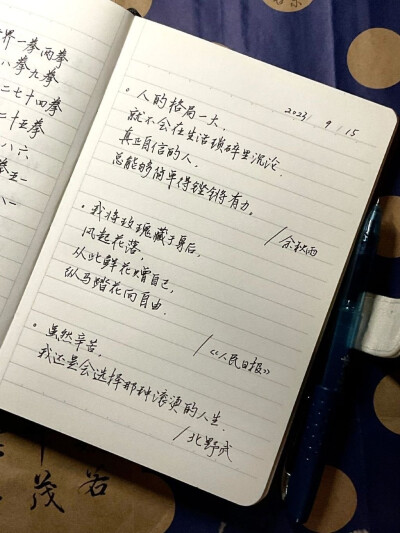 界一拳两拳
八拳九拳
二七十四拳
二十五拳
八六
拳五一
八一
2023 9 15
。人的格局一大,
就不会在生活琐碎里沉沦.
真正自信的人.
总能够简单得铿锵有力。
/余秋雨
。我将玫瑰藏于身后,
风起花落,
从此鲜花赠自己,
纵马踏花向自由.
/《人民日报》
。虽然辛苦,
我还是会选择那种滚烫的人生.
/北野武
茂
若